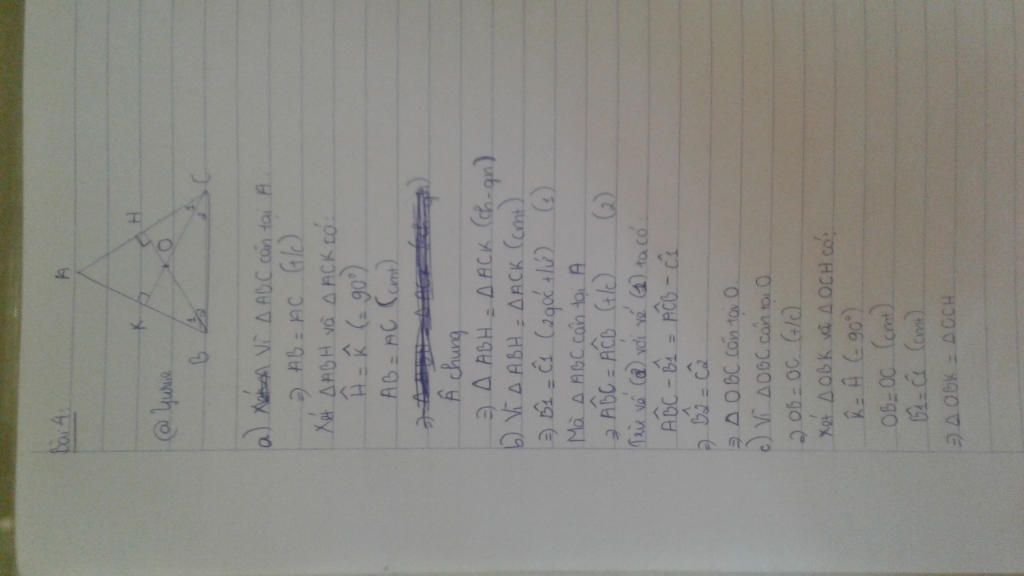 Bài 4:
A
K
H
O
B
C
1
2
1
2
a) Vì ΔABC cân tại A.
⇒ AB = AC (t/c)
Xét ΔABH và ΔACK có:
Ĥ = K̂ (= 90°)
AB = AC (cmt)
Â chung
⇒ ΔABH = ΔACK (ch-gn)
b) Vì ΔABH = ΔACK (cmt)
⇒ B̂1 = Ĉ1 (2 góc t/ứ) (1)
Mà ΔABC cân tại A
⇒ AB̂C = AĈB (t/c) (2)
Trừ vế (2) với vế (1) ta có:
AB̂C - B̂1 = AĈB - Ĉ1
⇒ B̂2 = Ĉ2
⇒ ΔOBC cân tại O
c) Vì ΔOBC cân tại O
⇒ OB = OC (t/c)
Xét ΔOBK và ΔOCH có:
K̂ = Ĥ (= 90°)
OB = OC (cmt)
B̂1 = Ĉ1 (cmt)
⇒ ΔOBK = ΔOCH